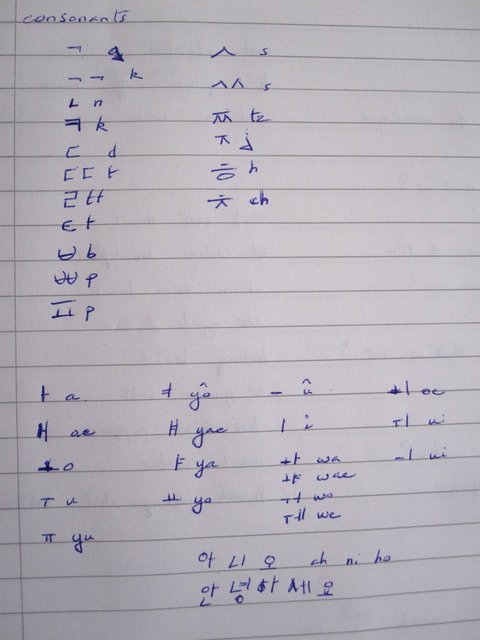 consonants
ㄱ g ㅅ s
ㄱㄱ k ㅅㅅ s
ㄴ n ㅉ tz
ㅋ k ㅈ j
ㄷ d ㅎ h
ㄷㄷ t ㅊ ch
ㄹ tt
ㅌ t
ㅂ b
ㅃ p
ㅍ p
ㅏ a ㅕ yô ㅡ û ㅚ oe
ㅐ ae ㅒ yae ㅣ i ㅟ ui
ㅗ o ㅑ ya ㅘ wa ㅢ ui
ㅙ wae
ㅜ u ㅛ yo ㅝ wo
ㅞ we
ㅠ yu
아 니 오 ch ni ho
안 녕 하 세 요